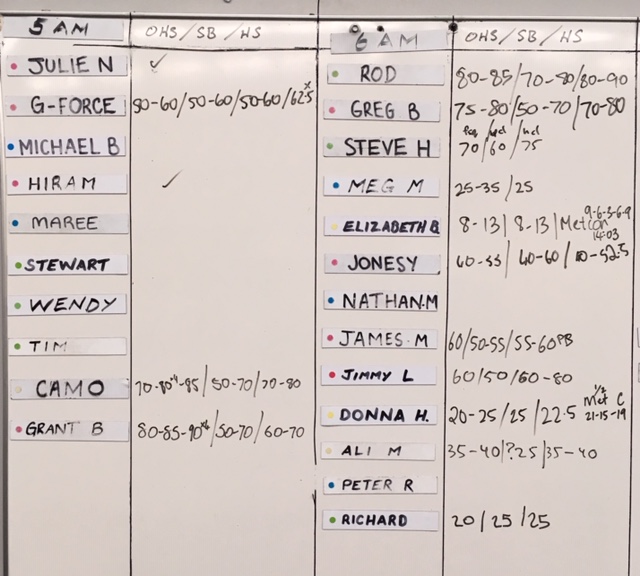 5 AM OHS/SB/HS
JULIE N ✓
G-FORCE 50-60/50-60/50-60/62.5 x
MICHAEL B
HIRAM ✓
MAREE
STEWART
WENDY
TIM
CAMO 70-80-85/50-70/70-80
GRANT B 80-85-90/50-70/60-70
6 AM OHS/SB/HS
ROD 80-85/70-80/80-90
GREG B 75-80/50-70/70-80
STEVE H 70/60/75
MEG M 25-35/25
ELIZABETH B 8-13/8-13/Metcon 9-6-3-6-9
14:03
JONESY 40-60/
NATHAN.M
JAMES.M 60/50-55/55-60 PB
JIMMY L 60/50/60-80
DONNA H. 20-25/25/22.5 1/2 Met C
21-15-
ALI M 35-40/?25/35-40
PETER R
RICHARD 20/25/25